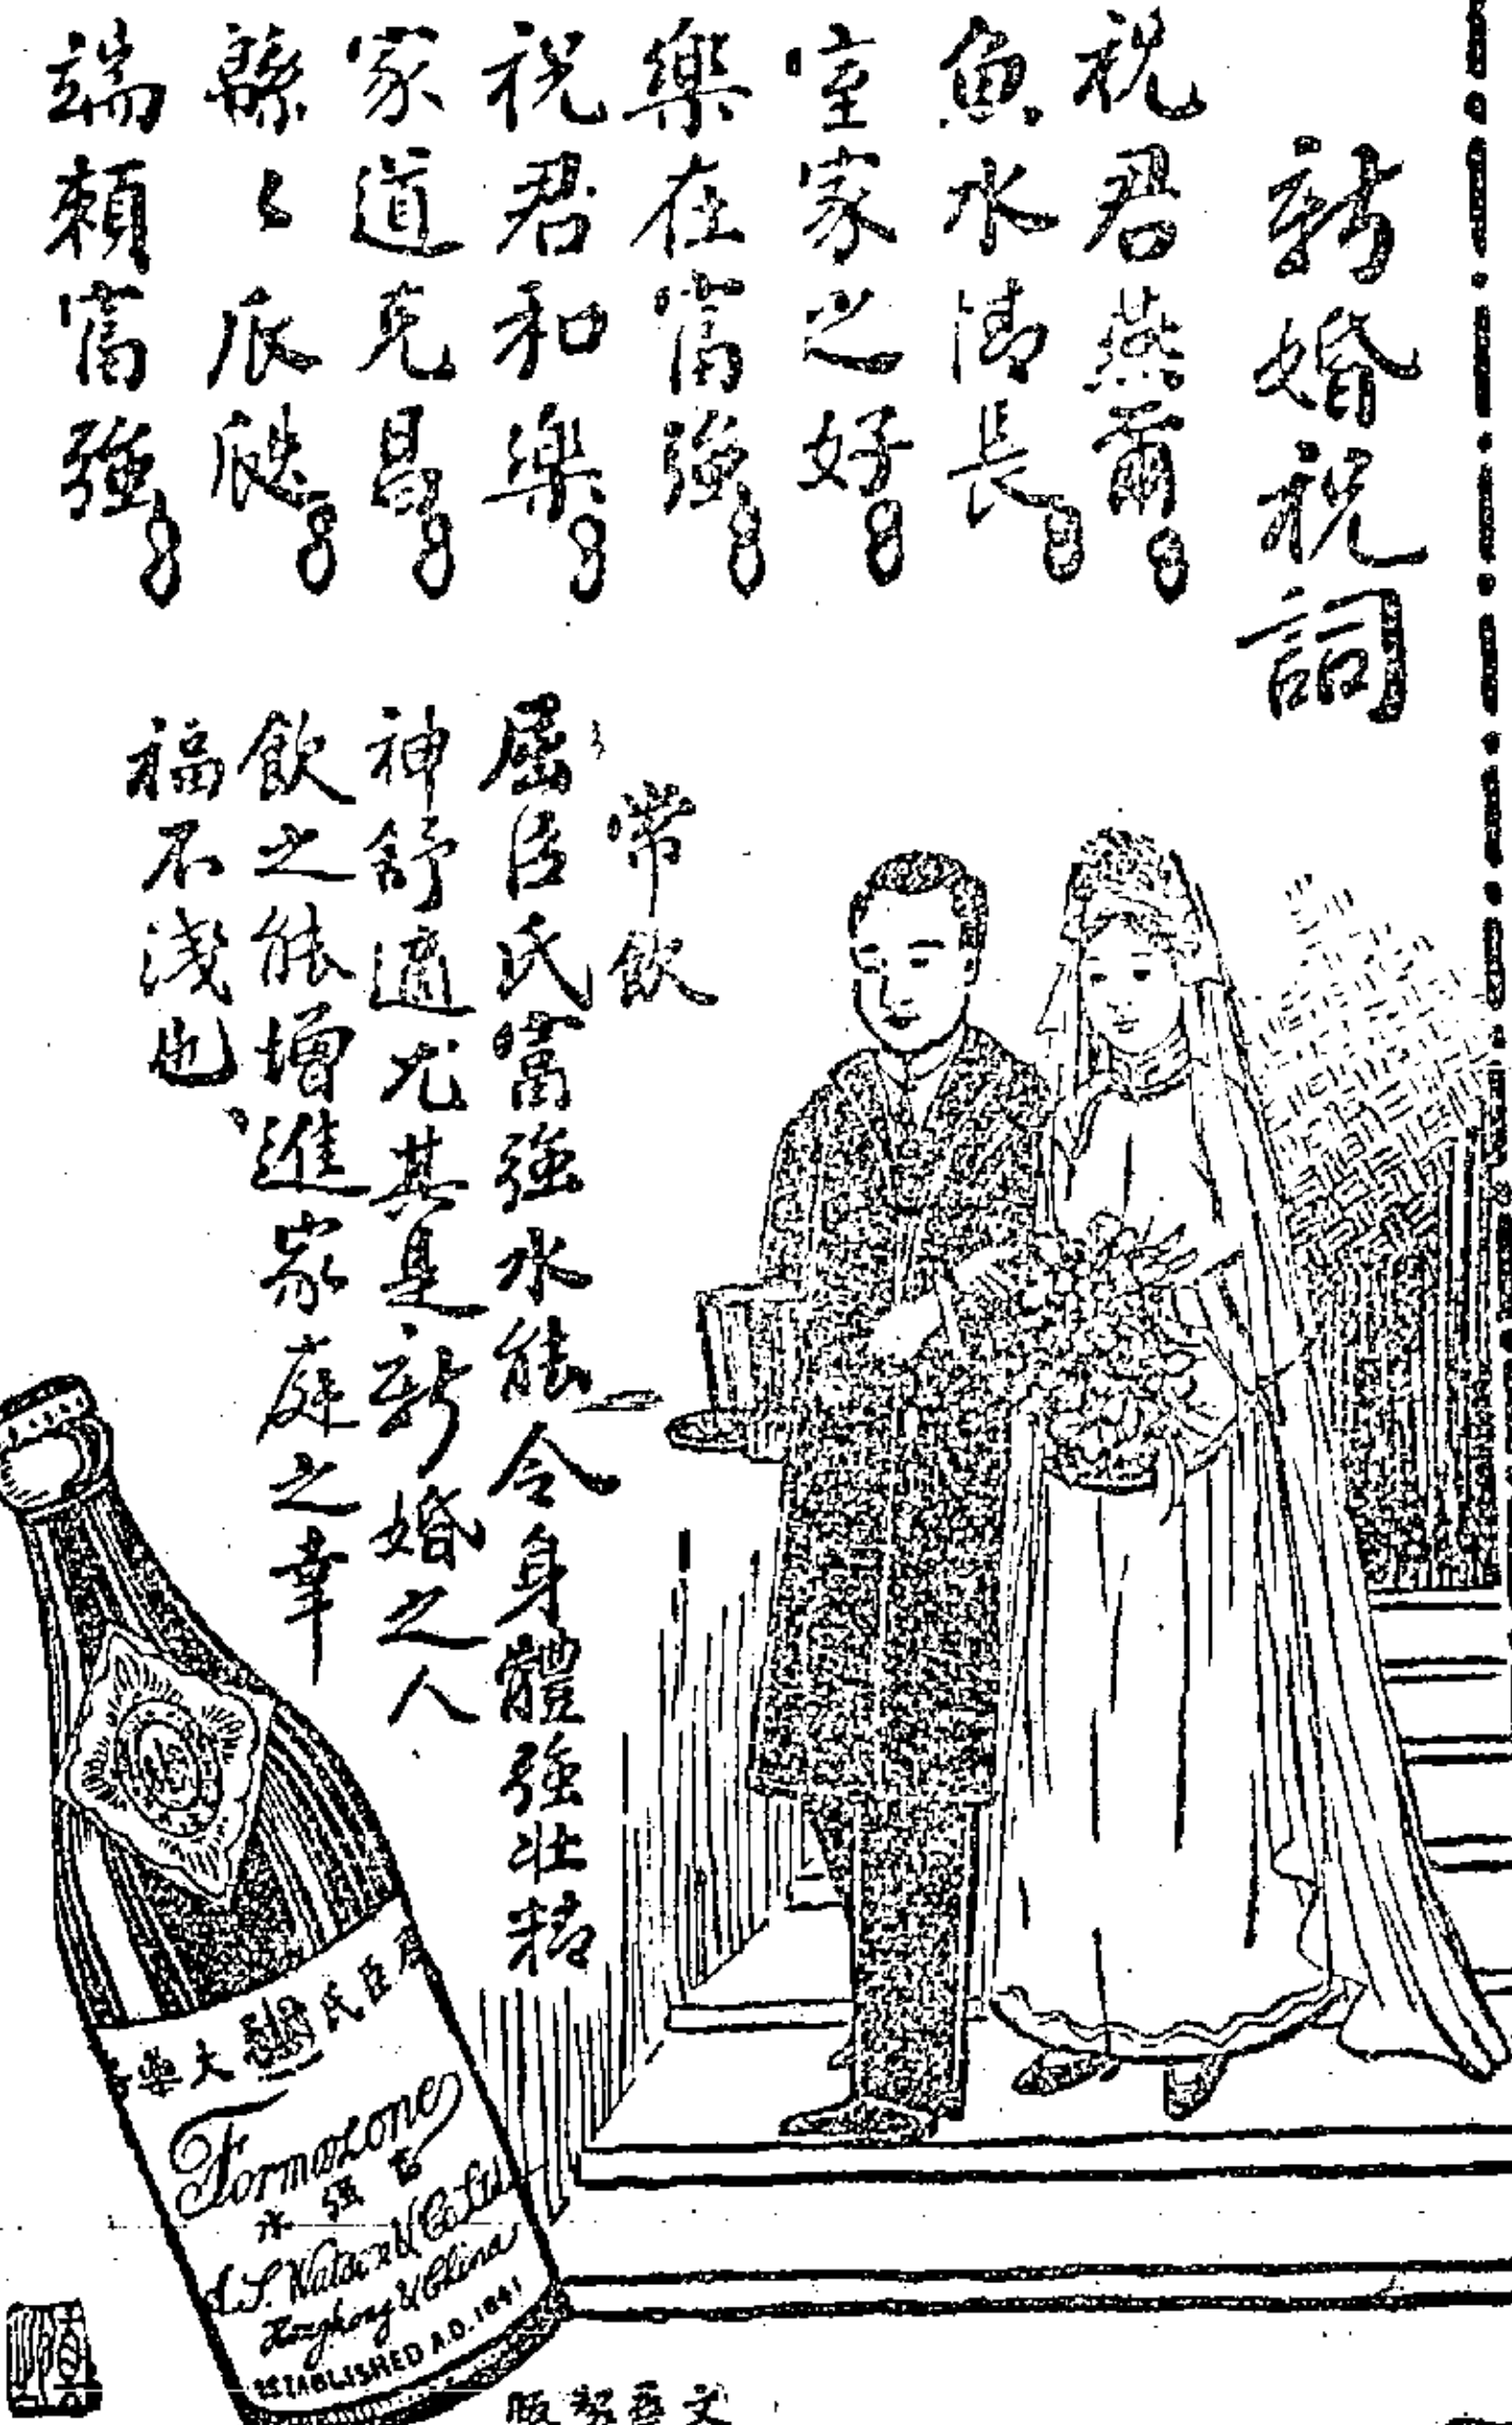 新婚祝詞
祝君燕爾
魚水情長
室家之好
樂在富強
祝君和樂
家道克昌
緜〻瓜瓞
端賴富強
常飲
屈臣氏富強水能令身體強壯精
神舒適尤其是新婚之人
飲之能增進家庭之幸
福不淺也
屈臣氏 大藥
Formozone
富強水
A.S. Watson & Co Ltd
Hongkong & China
ESTABLISHED A.D. 1841
文華製版